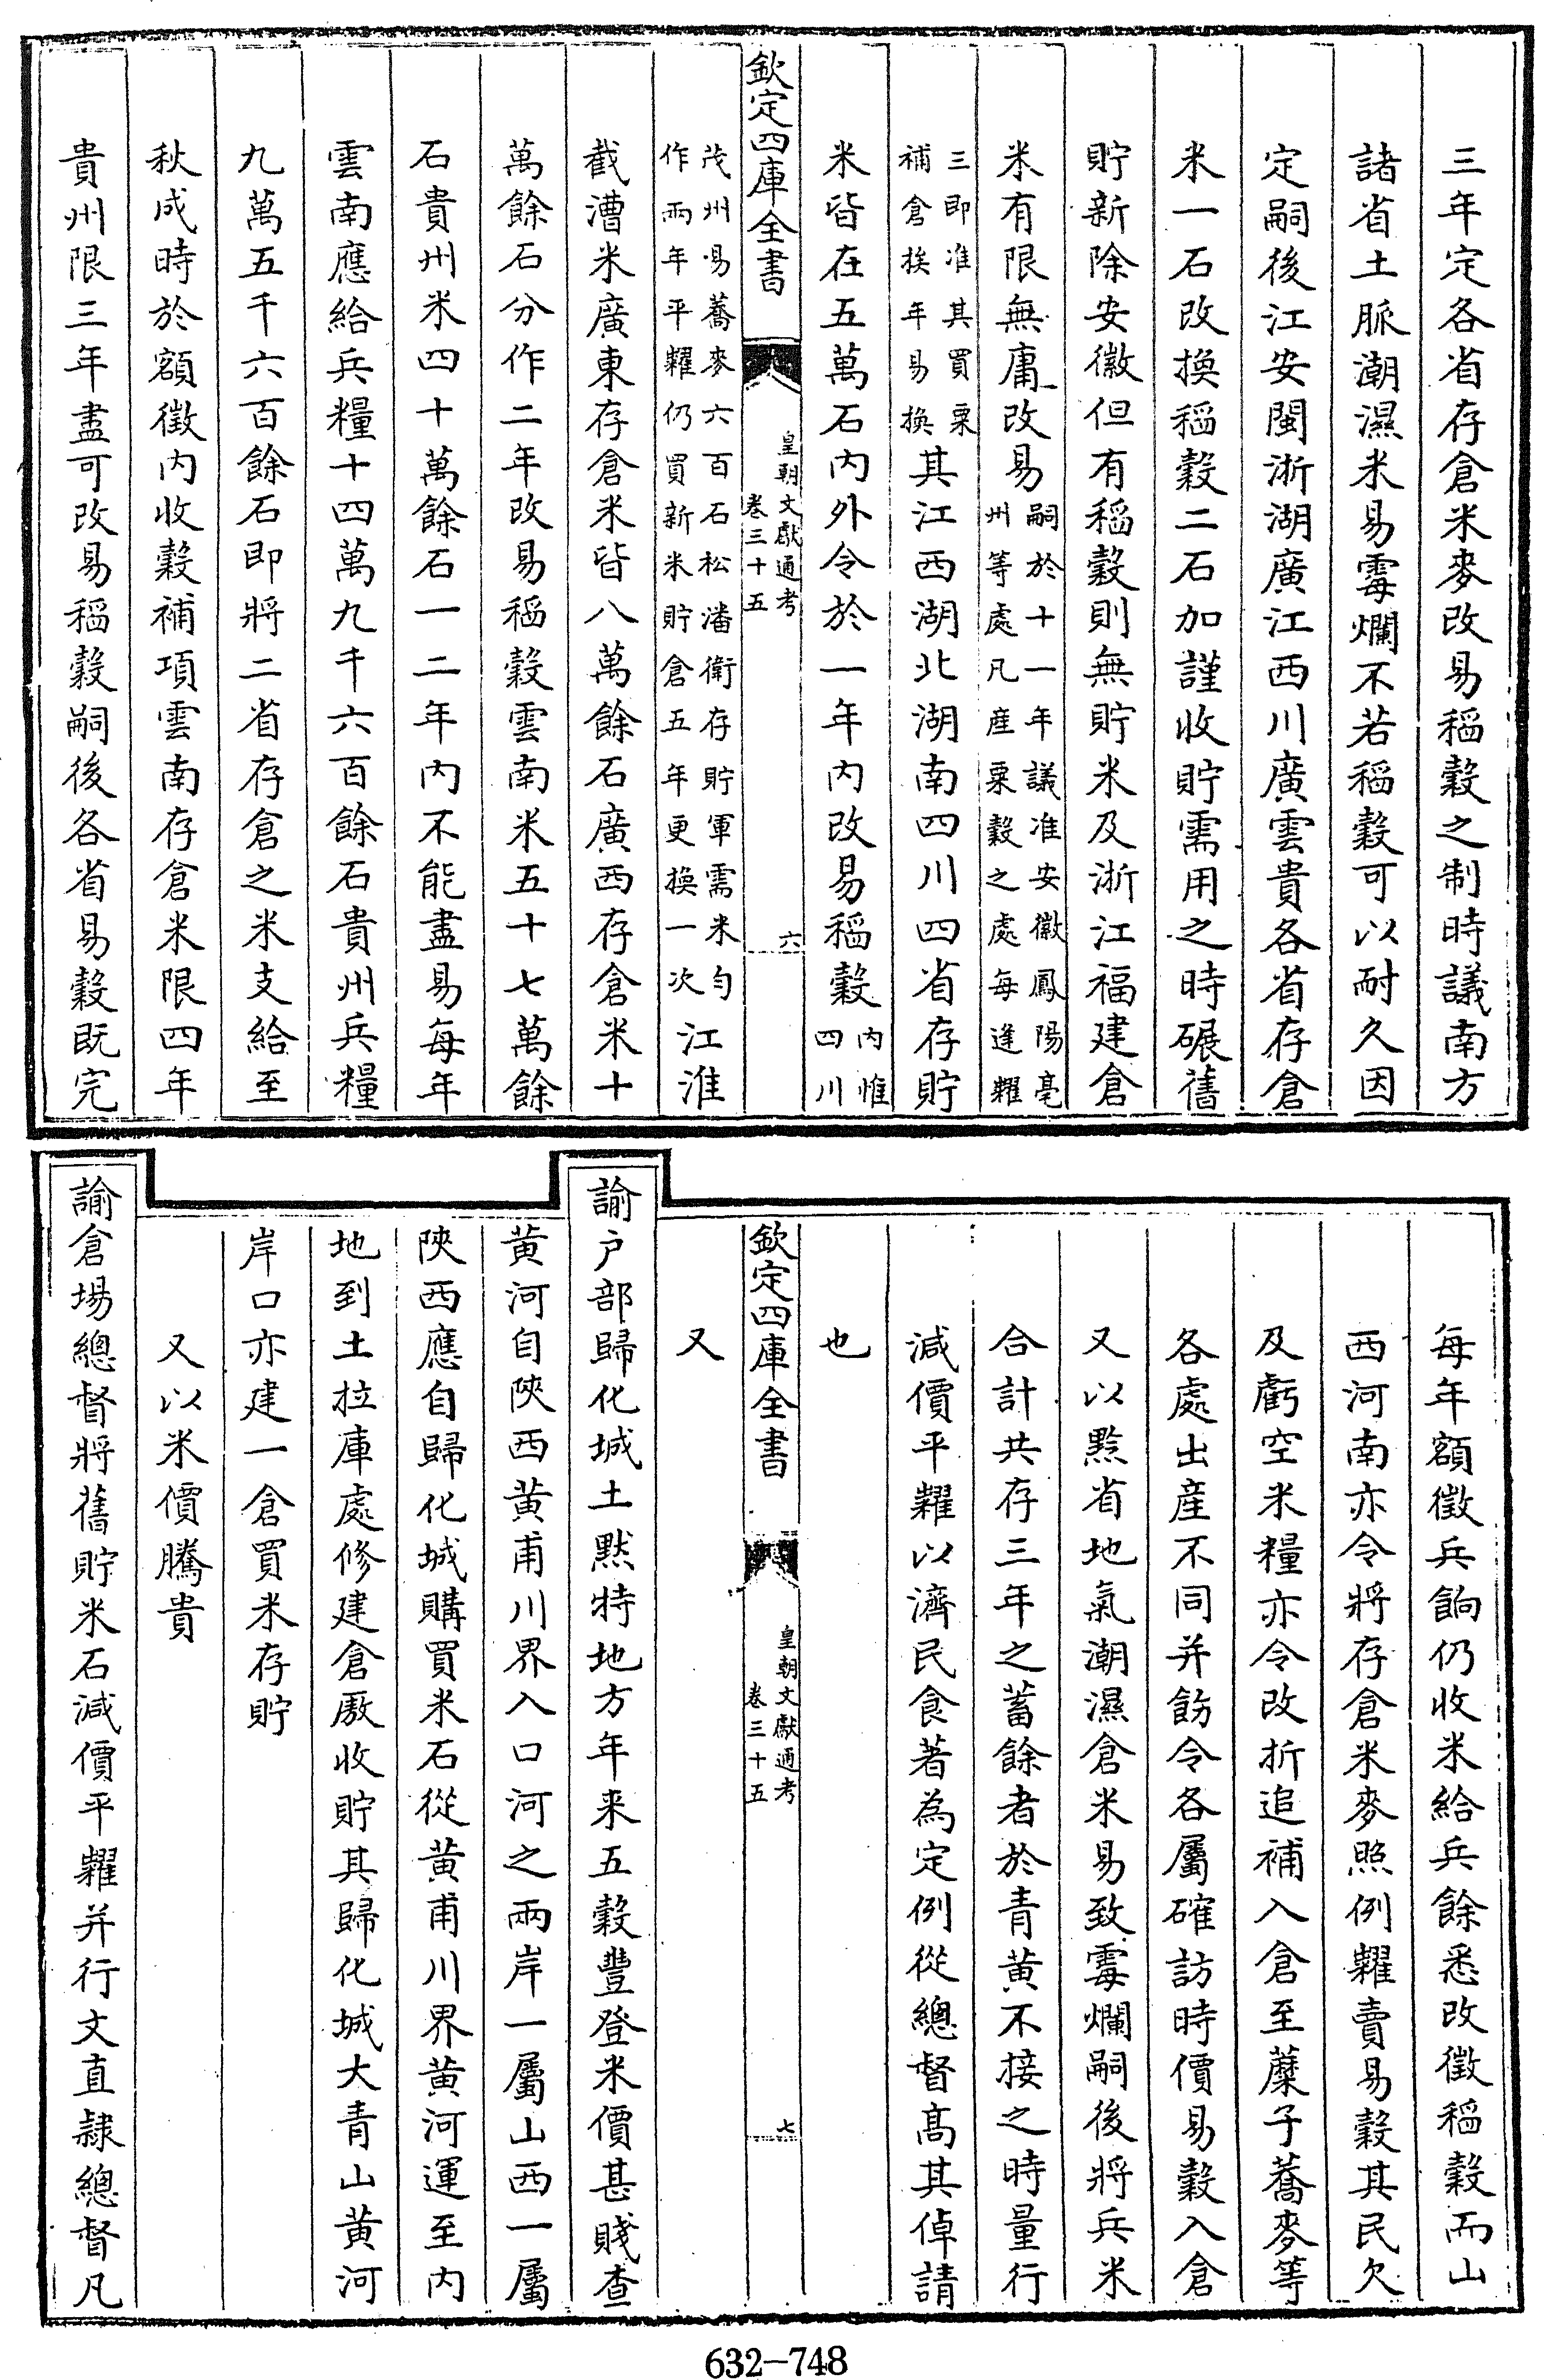 三年定各省存倉米麥改易稻穀之制時議南方
諸省土脈潮濕米易霉爛不若稻穀可以耐久因
定嗣後江安閩浙湖廣江西川廣雲貴各省存倉
米一石改換稻穀二石加謹收貯需用之時碾舊
貯新除安徽但有稻穀則無貯米及浙江福建倉
米有限無庸改易嗣於十一年議准安徽鳳陽亳
州等處凡産粟穀之處每逢糶
三即准其買粟
補倉挨年易換其江西湖北湖南四川四省存貯
米皆在五萬石內外令於一年內改易稻穀內惟
四川
欽定四庫全書
皇朝文獻通考
卷三十五
六
茂州易蕎麥六百石松潘衛存貯軍需米勻
作兩年平糶仍買新米貯倉五年更換一次江淮
截漕米廣東存倉米皆八萬餘石廣西存倉米十
萬餘石分作二年改易稻穀雲南米五十七萬餘
石貴州米四十萬餘石一二年內不能盡易每年
雲南應給兵糧十四萬九千六百餘石貴州兵糧
九萬五千六百餘石即將二省存倉之米支給至
秋成時於額徵內收穀補項雲南存倉米限四年
貴州限三年盡可改易稻穀嗣後各省易穀既完
每年額徵兵餉仍收米給兵餘悉改徵稻穀而山
西河南亦令將存倉米麥照例糶賣易穀其民欠
及虧空米糧亦令改折追補入倉至糜子蕎麥等
各處出産不同并飭令各屬確訪時價易穀入倉
又以黔省地氣潮濕倉米易致霉爛嗣後將兵米
合計共存三年之蓄餘者於青黃不接之時量行
減價平糶以濟民食著為定例從總督高其倬請
也
欽定四庫全書
皇朝文獻通考
卷三十五
七
又
諭戶部歸化城土默特地方年来五穀豐登米價甚賤查
黃河自陝西黃甫川界入口河之兩岸一屬山西一屬
陝西應自歸化城購買米石從黃甫川界黃河運至內
地到土拉庫處修建倉厫收貯其歸化城大青山黃河
岸口亦建一倉買米存貯
又以米價騰貴
諭倉場總督將舊貯米石減價平糶并行文直隸總督凡
632-748